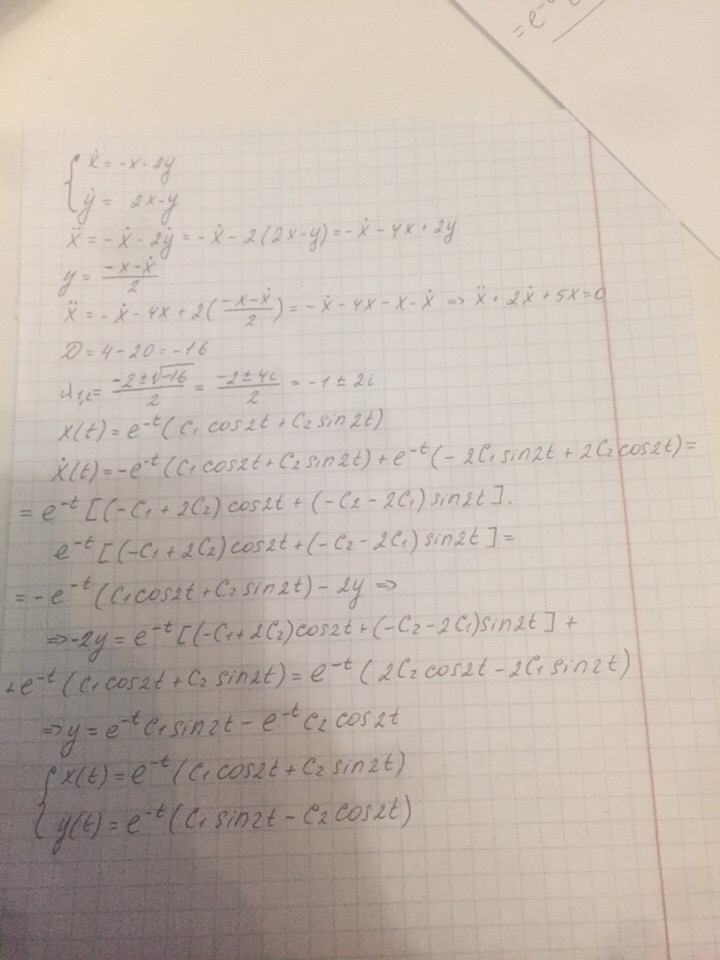 = e⁻
{ ẋ = -x - 2y
ẏ = 2x - y
ẍ = -ẋ - 2ẏ = -ẋ - 2(2x-y) = -ẋ - 4x + 2y
y = (-x-ẋ)/2
ẍ = -ẋ - 4x + 2((-x-ẋ)/2) = -ẋ - 4x - x - ẋ => ẍ + 2ẋ + 5x = 0
D = 4 - 20 = -16
λ₁,₂ = (-2±√-16)/2 = (-2±4i)/2 = -1 ± 2i
x(t) = e^-t (C₁ cos2t + C₂ sin2t)
ẋ(t) = -e^-t (C₁ cos2t + C₂ sin2t) + e^-t (-2C₁ sin2t + 2C₂ cos2t) =
= e^-t [(-C₁ + 2C₂) cos2t + (-C₂ - 2C₁) sin2t].
e^-t [(-C₁ + 2C₂) cos2t + (-C₂ - 2C₁) sin2t] =
= -e^-t (C₁ cos2t + C₂ sin2t) - 2y =>
=> -2y = e^-t [(-C₁ + 2C₂) cos2t + (-C₂ - 2C₁) sin2t] +
+ e^-t (C₁ cos2t + C₂ sin2t) = e^-t (2C₂ cos2t - 2C₁ sin2t)
=> y = e^-t C₁ sin2t - e^-t C₂ cos2t
{ x(t) = e^-t (C₁ cos2t + C₂ sin2t)
y(t) = e^-t (C₁ sin2t - C₂ cos2t)